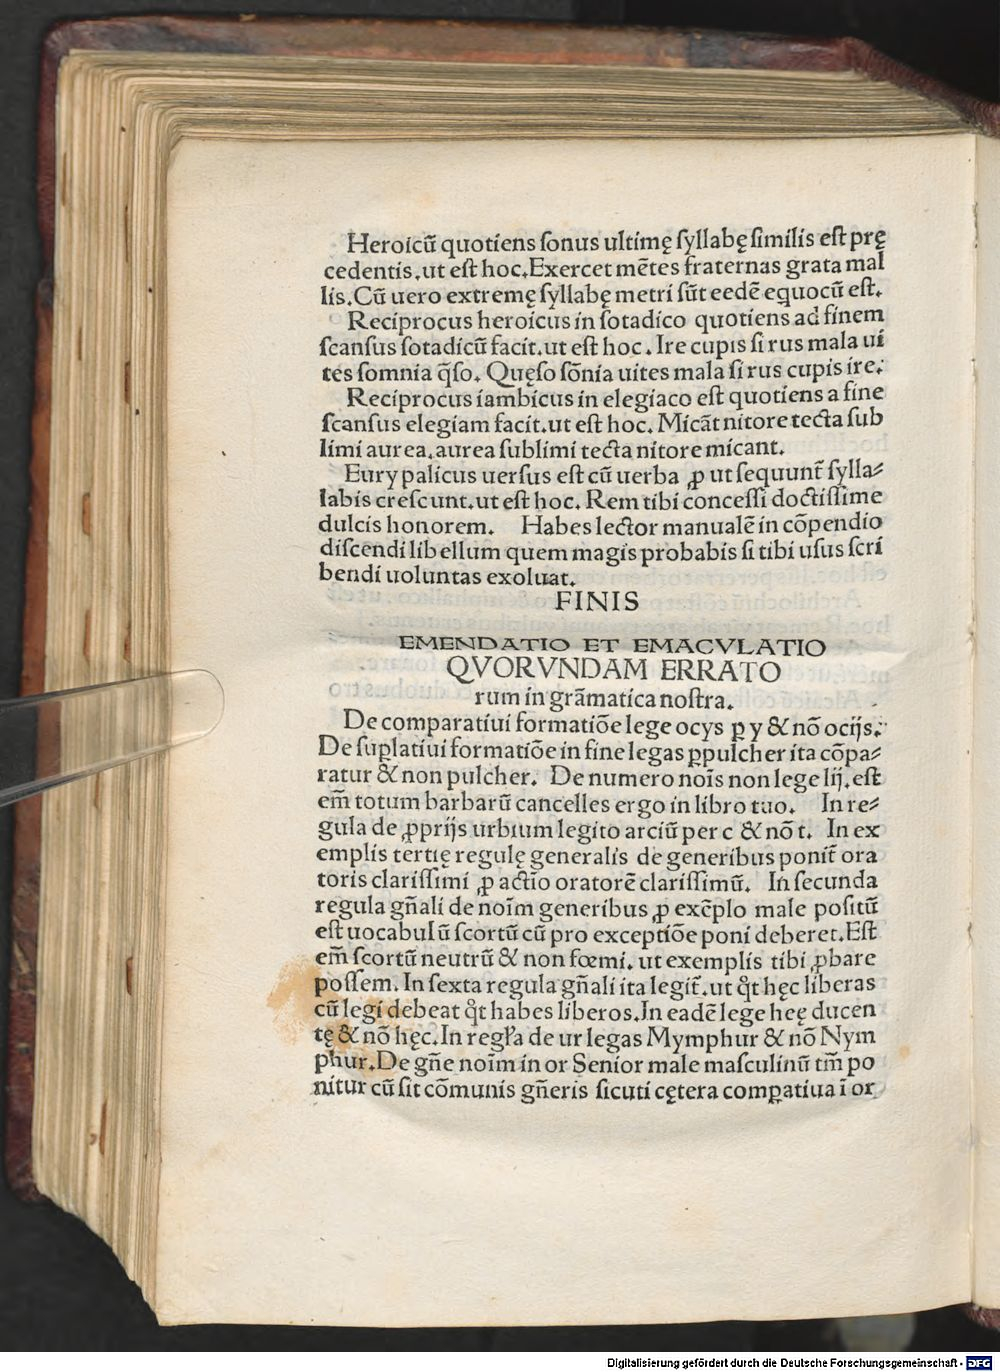 Heroicũ quotiens ſonus ultimę ſyllabę ſimilis eſt prę
cedentis.ut eſt hoc.Exercet mẽtes fraternas grata mal
lis.Cũ uero extremę ſyllabę metri ſũt eedẽ equocũ eſt.
Reciprocus heroicus in ſotadico quotiens ad finem
ſcanſus ſotadicũ facit.ut eſt hoc. Ire cupis ſi rus mala ui
tes ſomnia q̃ſo. Quęſo ſõnia uites mala ſi rus cupis ire.
Reciprocus iambicus in elegiaco eſt quotiens a fine
ſcanſus elegiam facit.ut eſt hoc. Micãt nitore tecta ſub
limi aurea.aurea ſublimi tecta nitore micant.
Eurypalicus uerſus eſt cũ uerba ꝓ ut ſequunt̃ ſylla⸗
labis creſcunt.ut eſt hoc. Rem tibi conceſſi doctiſſime
dulcis honorem. Habes lector manualẽ in cõpendio
diſcendi libellum quem magis probabis ſi tibi uſus ſcri
bendi uoluntas exoluat.
FINIS
EMENDATIO ET EMACVLATIO
QVORVNDAM ERRATO
rum in grãmatica noſtra.
De comparatiui formatiõe lege ocys ꝑ y & nõ ocijs.
De ſuplatiui formatiõe in fine legas ꝑpulcher ita cõpa⸗
ratur & non pulcher. De numero noĩs non lege lij.eſt
em̃ totum barbarũ cancelles ergo in libro tuo. In re⸗
gula de ꝓprijs urbium legito arciũ per c & nõ t. In ex
emplis tertię regulę generalis de generibus ponit̃ ora
toris clariſſimi ꝓ actio oratorẽ clariſſimũ. In ſecunda
regula gñali de noĩm generibus ꝓ exẽplo male poſitũ
eſt uocabulũ ſcortũ cũ pro exceptiõe poni deberet.Eſt
em̃ ſcortũ neutrũ & non fœmi. ut exemplis tibi ꝓbare
poſſem. In ſexta regula gñali ita legit̃.ut q̃t hęc liberas
cũ legi debeat q̃t habes liberos.In eadẽ lege heę ducen
tę & nõ hęc.In regl̃a de ur legas Mymphur & nõ Nym
phur.De gñe noĩm in or Senior male maſculinũ tm̃ po
nitur cũ ſit cõmunis gñeris ſicuti cętera comꝑatiua ĩ or
Digitalisierung gefördert durch die Deutsche Forschungsgemeinschaft - DFG